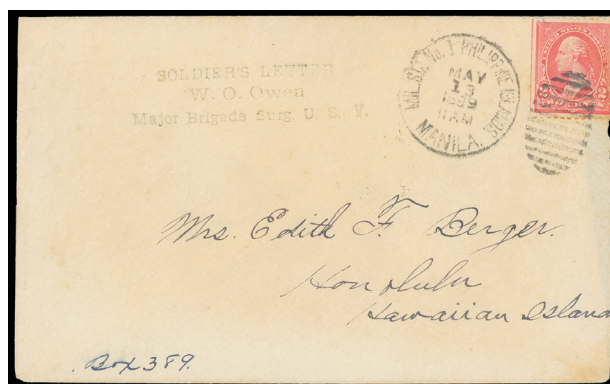 SOLDIER'S LETTER
W. O. Owen
Major Brigade Surg. U. S. V.
MIL. STA. No. 1 PHILIPPINE ISLANDS.
MAY
13
1899
11 AM
MANILA.
Mrs. Edith F. Berger.
Honolulu
Hawaiian Island
Box 389.